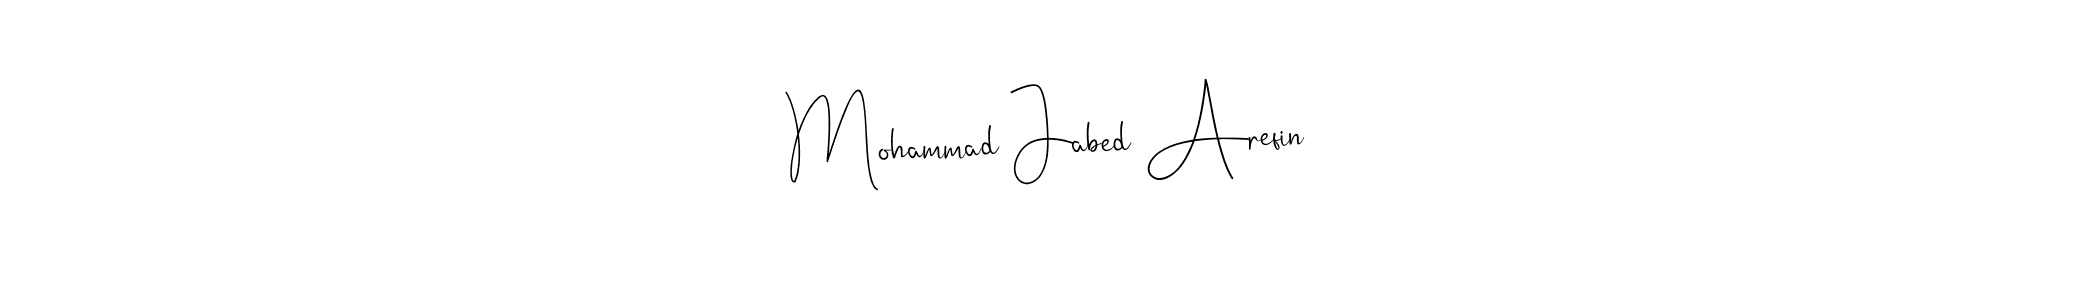 Mohammad Jabed Arefin